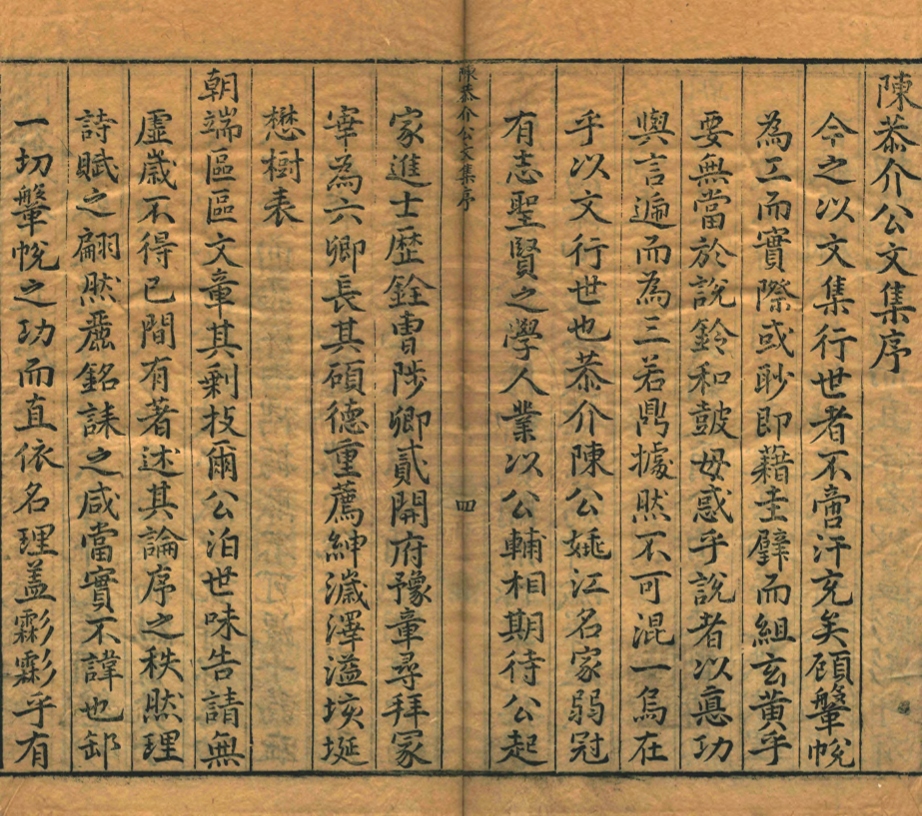 陳恭介公文集序
今之以文集行世者不啻汗充矣顧鞶帨
為工而實際或眇即藉圭璧而組玄黃乎
要無當於說鈴和鼓毋惑乎說者以惪功
與言遍而為三若鼎據然不可混一烏在
乎以文行世也恭介陳公姚江名家弱冠
有志聖賢之學人業以公輔相期待公起
陳恭介公文集序
四
家進士歷銓曹陟卿貳開府豫章尋拜冢
宰為六卿長其碩德重薦紳濊澤溢垓埏
懋樹表
朝端區區文章其剩技爾公泊世味告請無
虛歲不得已間有著述其論序之秩然理
詩賦之翩然麗銘誄之咸當實不諱也却
一切鞶帨之功而直依名理蓋霦霦乎有